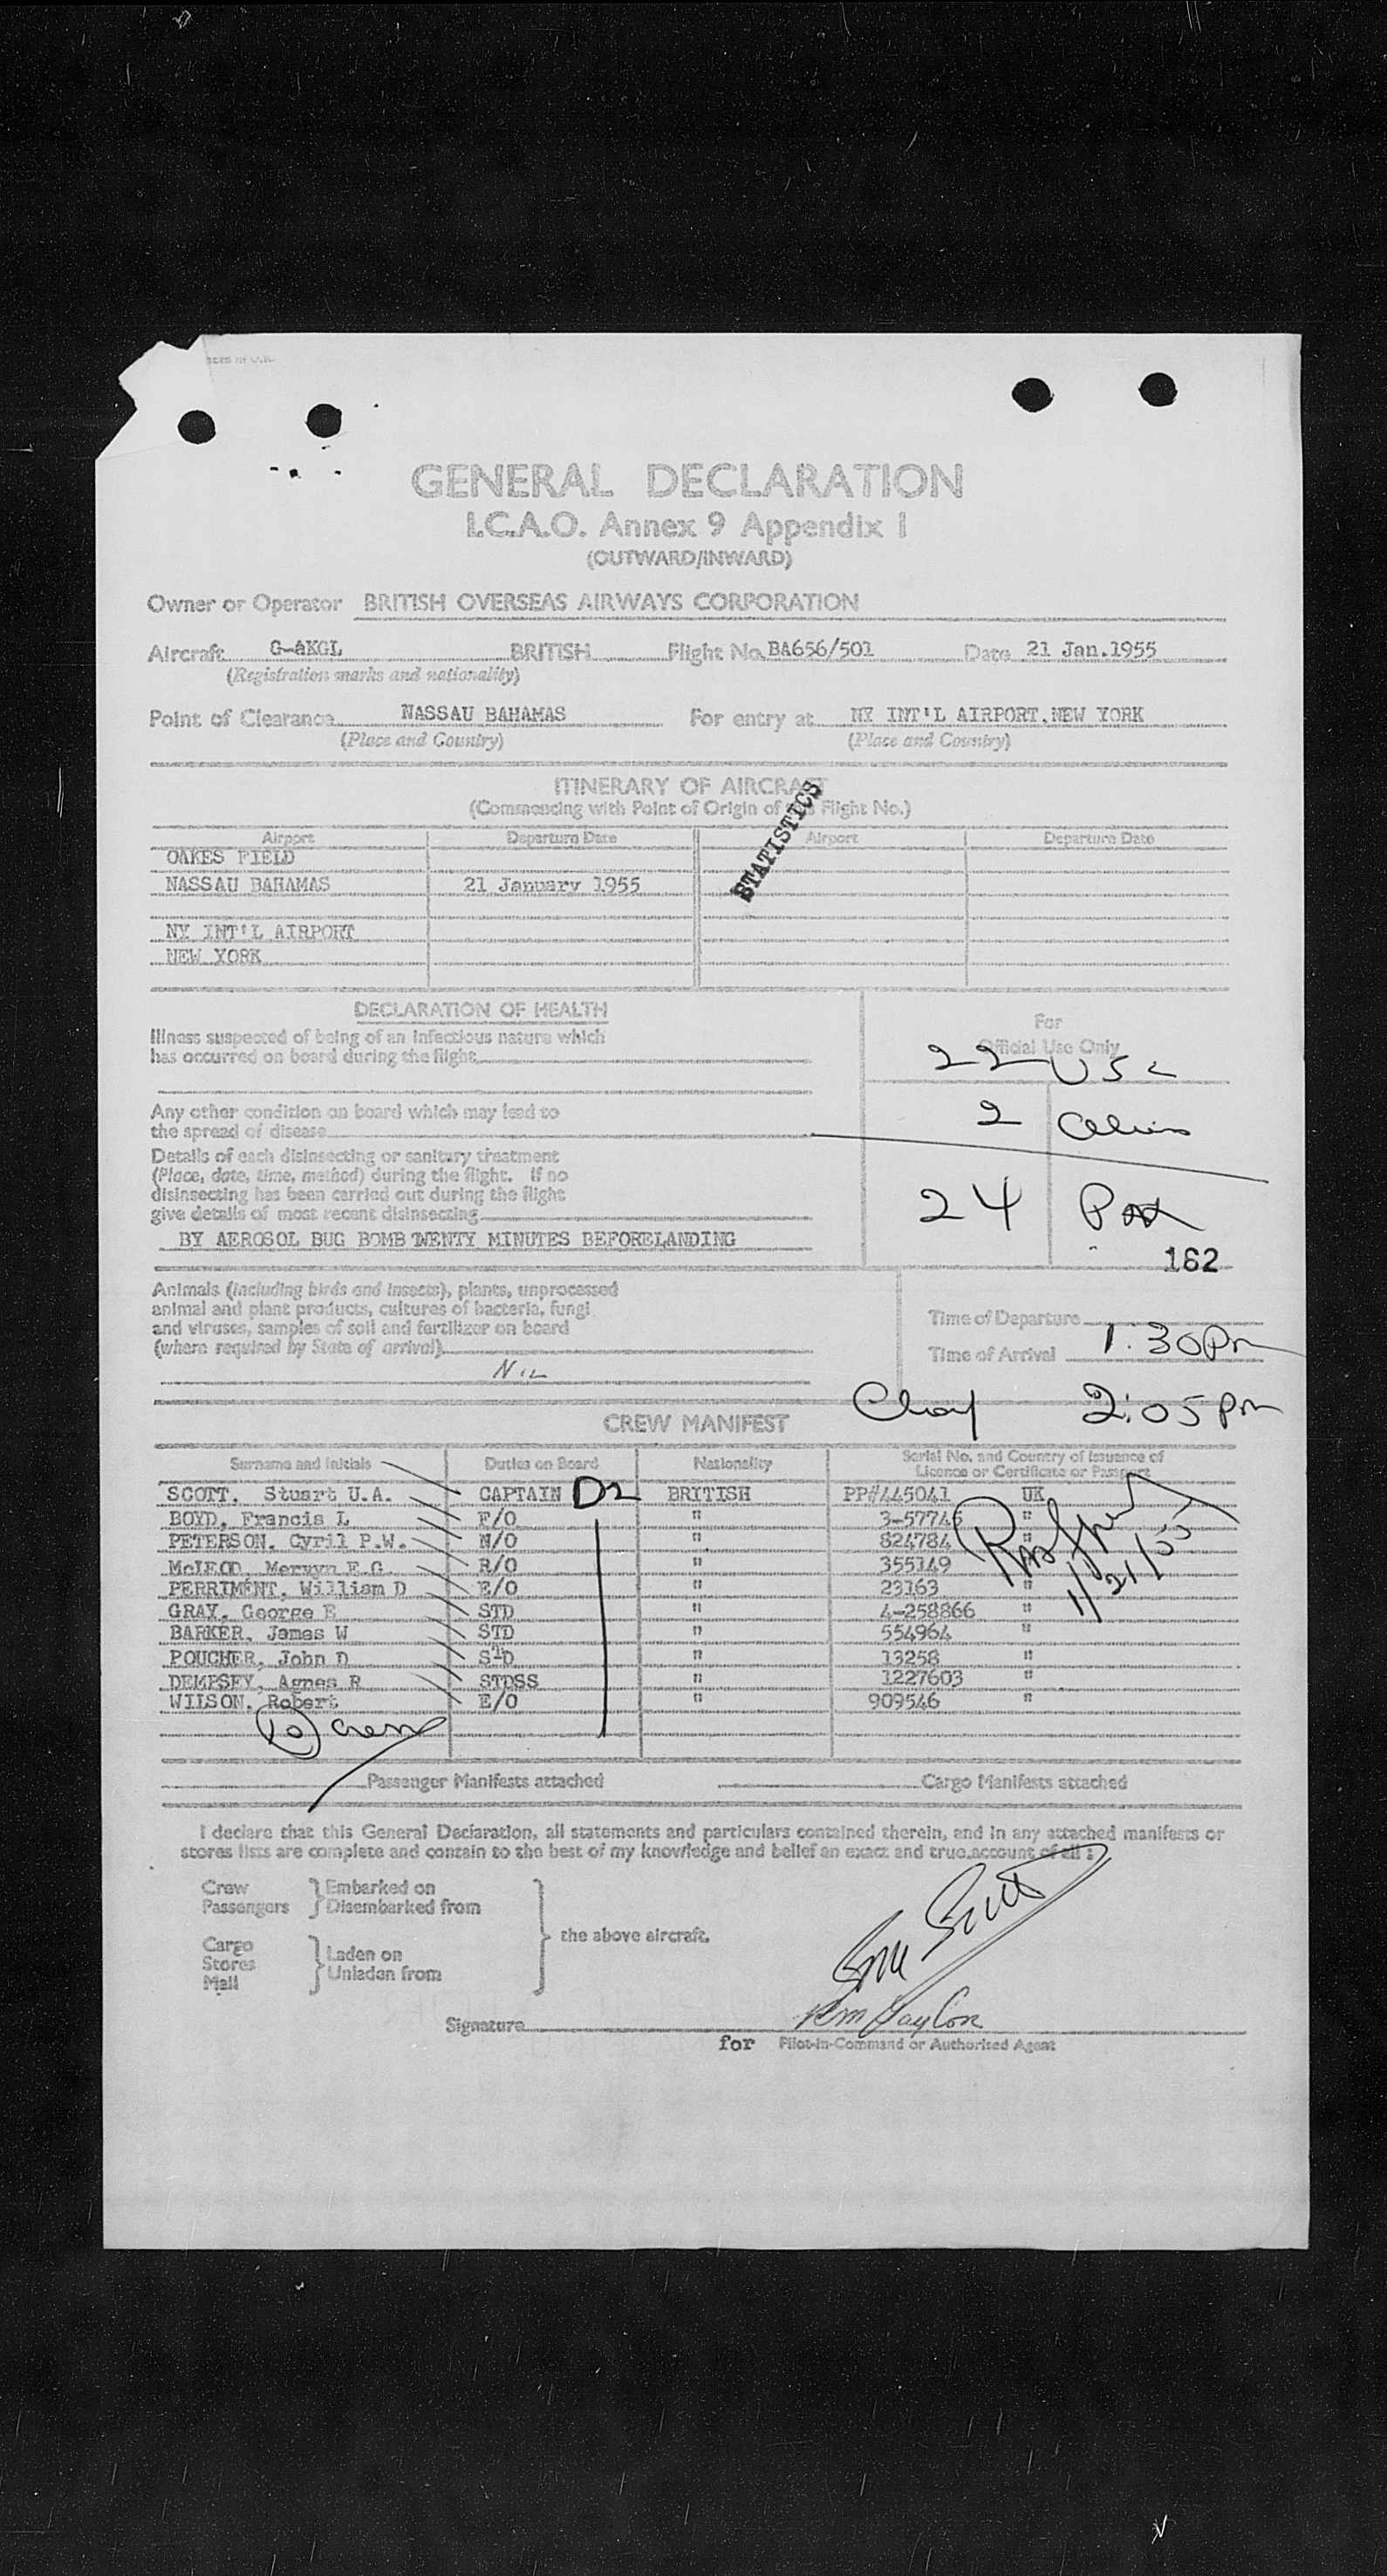 GENERAL DECLARATION
I.C.A.O. Annex 9 Appendix I
(OUTWARD/INWARD)
Owner or Operator BRITISH OVERSEAS AIRWAYS CORPORATION
Aircraft G-AKGL BRITISH Flight No. BA656/501 Date 21 Jan.1955
(Registration marks and nationality)
Point of Clearance NASSAU BAHAMAS For entry at NY INT'L AIRPORT,NEW YORK
(Place and Country) (Place and Country)
ITINERARY OF AIRCRAFT
(Commencing with Point of Origin of Flight No.)
STATISTICS
Airport Departure Date Airport Departure Date
OAKES FIELD
NASSAU BAHAMAS 21 January 1955
NY INT'L AIRPORT
NEW YORK
DECLARATION OF HEALTH
Illness suspected of being of an infectious nature which
has occurred on board during the flight
Any other condition on board which may lead to
the spread of disease
Details of each disinsecting or sanitary treatment
(Place, date, time, method) during the flight. If no
disinsecting has been carried out during the flight
give details of most recent disinsecting
BY AEROSOL BUG BOMB TWENTY MINUTES BEFORELANDING
For
Official Use Only
22 USC
2 Aliens
24 Pax
162
Animals (including birds and insects), plants, unprocessed
animal and plant products, cultures of bacteria, fungi
and viruses, samples of soil and fertilizer on board
(where required by State of arrival)
NIL
Time of Departure
Time of Arrival 1:30 Pm
2:05 pm
CREW MANIFEST
Surname and Initials Duties on Board Nationality Serial No. and Country of Issuance of
Licence or Certificate or Passport
SCOTT, Stuart U.A. CAPTAIN D2 BRITISH PP#445041 UK
BOYD, Francis L F/O " 3-57745 "
PETERSON, Cyril P.W. N/O " 824784 "
McLEOD, Mervyn E G R/O " 355149 "
PERRIMENT, William D E/O " 23163 "
GRAY, George E STD " 4-258866 "
BARKER, James W STD " 554964 "
POUCHER, John D STD " 13258 "
DEMPSEY, Agnes R STDSS " 1227603 "
WILSON, Robert E/O " 909546 "
1/21/55
10 crew
Passenger Manifests attached Cargo Manifests attached
I declare that this General Declaration, all statements and particulars contained therein, and in any attached manifests or
stores lists are complete and contain to the best of my knowledge and belief an exact and true account of all :
Crew
Passengers } Embarked on
Disembarked from
Cargo
Stores
Mail } Laden on
Unladen from
} the above aircraft.
Signature
for Pilot-in-Command or Authorised Agent